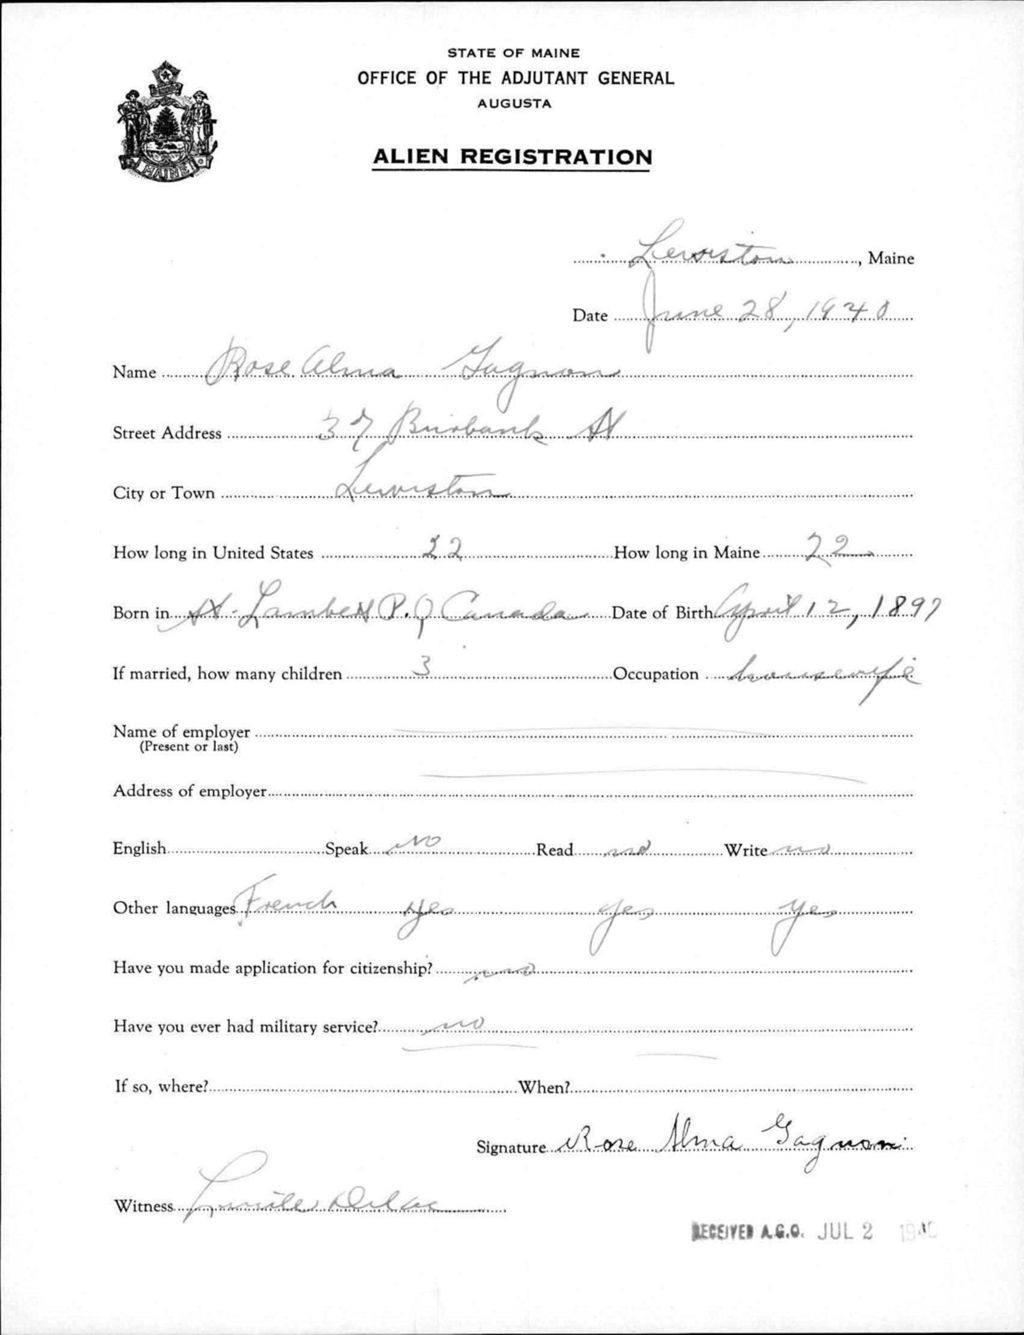 STATE OF MAINE
OFFICE OF THE ADJUTANT GENERAL
AUGUSTA
ALIEN REGISTRATION
MAINE
Lewiston, Maine
Date June 28, 1940
Name Rose Alma Gagnon
Street Address 37 Burbank St
City or Town Lewiston
How long in United States 22 How long in Maine 22
Born in St. Lambert P.Q Canada Date of Birth April 12, 1897
If married, how many children 3 Occupation housewife
Name of employer
(Present or last)
Address of employer
English Speak No Read no Write no
Other languages French yes yes yes
Have you made application for citizenship? no
Have you ever had military service? no
If so, where? When?
Signature Rose Alma Gagnon
Witness Lucille
RECEIVED A.G.O. JUL 2 1940